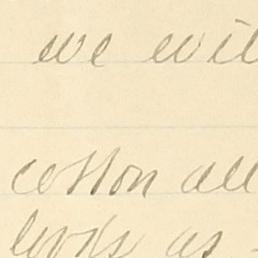 we wil
cotton all
as